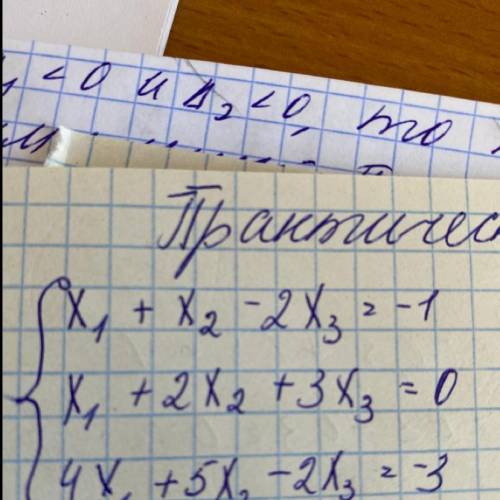 < 0 и Δ₂ < 0, то
Практичес
x₁ + x₂ - 2x₃ = -1
x₁ + 2x₂ + 3x₃ = 0
4x₁ + 5x₂ - 2x₃ = -3